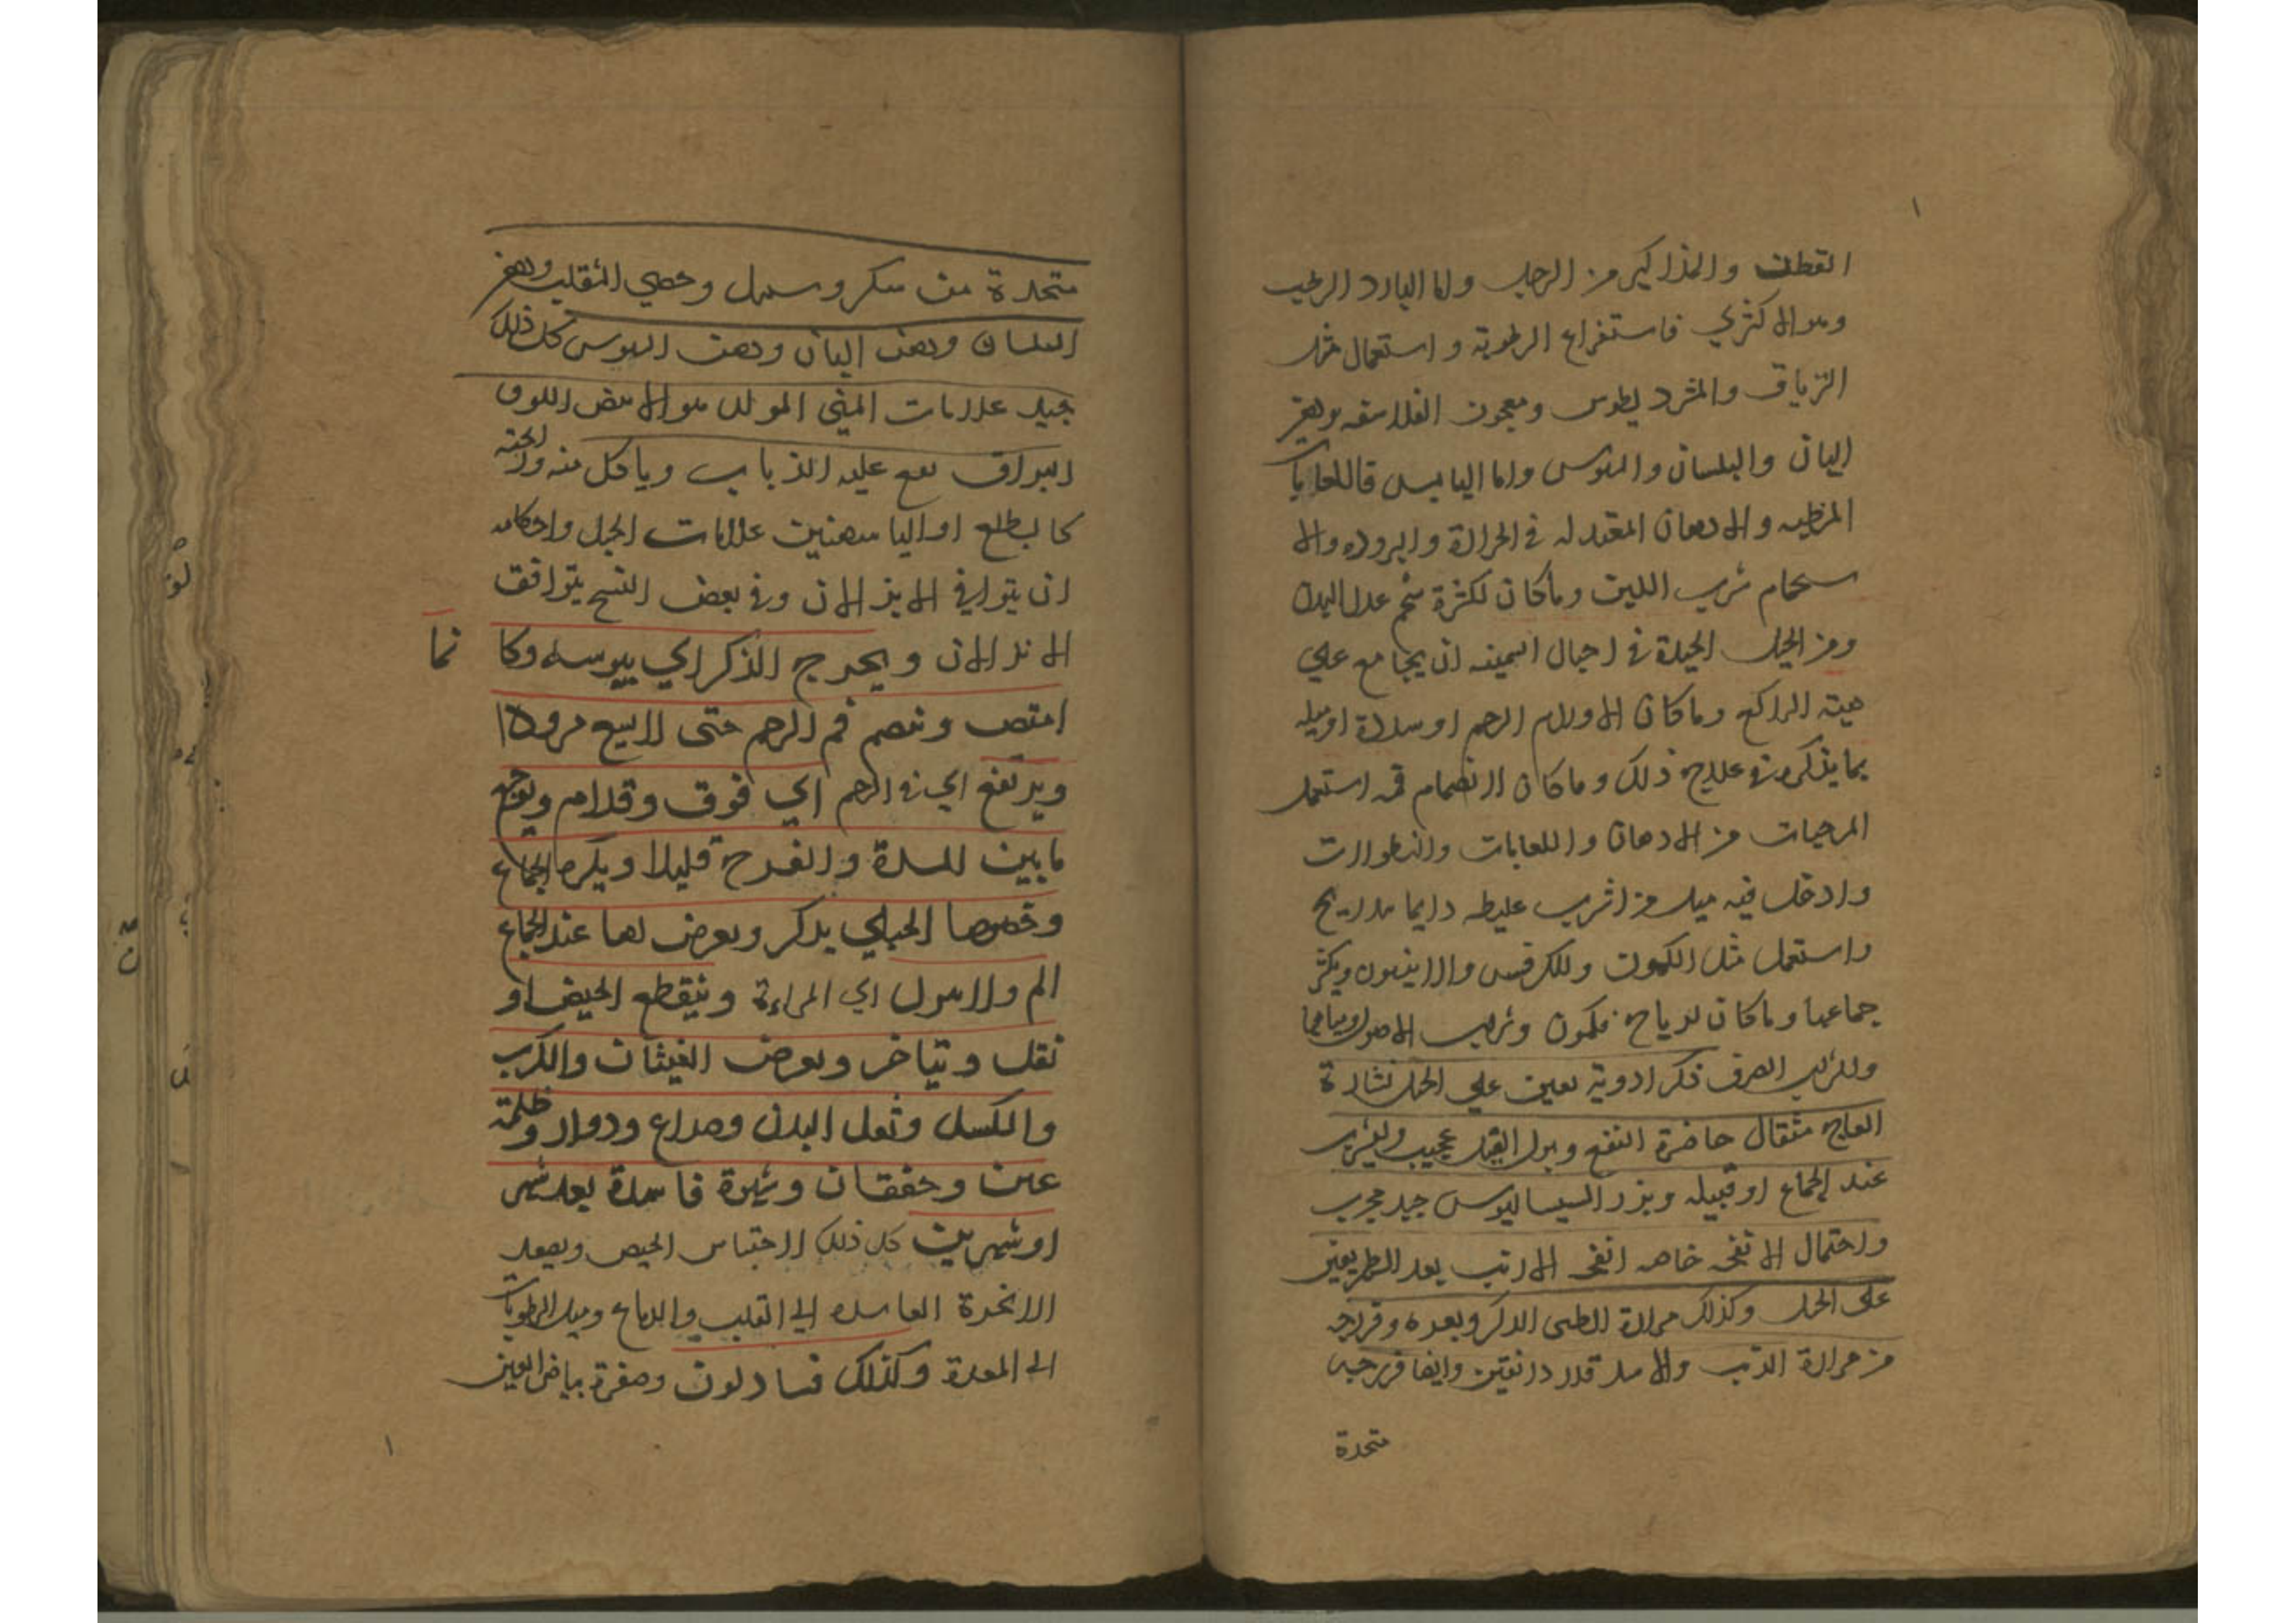 القطن والمذاكير من الرجل واما البارد الرطب
وهو الاكثري فاستفراغ الرطوبة واستعمال مثل
الترياق والمثرديطوس ومعجون الفلاسفه ودهن
البان والبلسان والسوسن واما اليابس فاللعابات
المرطبه والادهان المعتدله في الحرارة والبروده والا
ستحمام شرب اللبن وماكان لكثرة شحم عدل البدن
ومن الحيل الجيدة في احبال السمينه ان يجامع على
هيئة الراكع وماكان لاورام الرحم او سدة او ميله
بما يذكر في علاج ذلك وماكان لانضمام فمه استعمل
المرخيات من الادهان واللعابات والنطولات
وادخل فيه ميل من اشرب غليظه دايما
واستعمل مثل الكمون والكرفس والانيسون ويكثر
جماعها وماكان لرياح فكمون وشراب الاصول
وللشراب الصرف ذكر ادوية تعين على الحبل نشارة
العاج مثقال حاضرة النفع وبول الفيل عجيب وليشرب
عند الجماع او قبيله وبزر السيساليوس جيد مجرب
واحتمال الانفحه خاصه انفحه الارنب بعد الطهر يعين
على الحبل وكذلك مرارة الظبى الذكر وبعره وفرزجه
من مرارة الذئب والاسد قدر دانقين وايضا فرزجه
متخذة
متخذة من سكر وسنبل وخصي الثعلب ودهن
البلسان ودهن البان ودهن السوسن كل ذلك
جيد علامات المني المولد هو الابيض اللون
البراق يقع عليه الذباب وياكل منه ورائحته
كالطلع او الياسمين علامات الحبل واحكامه
ان يتوافي الانزالان وفي بعض النسخ يتوافق
الانزالان ويخرج الذكر الي يبوسه وكا
نما
امتص وينضم فم الرحم حتى لا يسع مرودا
ويرتفع اي فم الرحم الي فوق وقدام ويوجع
مابين السرة والفرج قليلا ويكره الجماع
وخصوصا الحبلى بذكر ويعرض لها عند الجماع
الم ولا تبول اي المراءة وينقطع الحيض او
يقل ويتاخر ويعرض الغيثان والكرب
والكسل وثقل البدن وصداع ودوار وظلمة
عين وخفقان وشهوة فاسدة بعد شهر
او شهرين كل ذلك لاحتباس الحيض ويصعد
الابخرة الفاسده الى القلب والدماغ وميل الرطوبات
الى المعدة وكذلك فساد لون وصفرة بياض العين